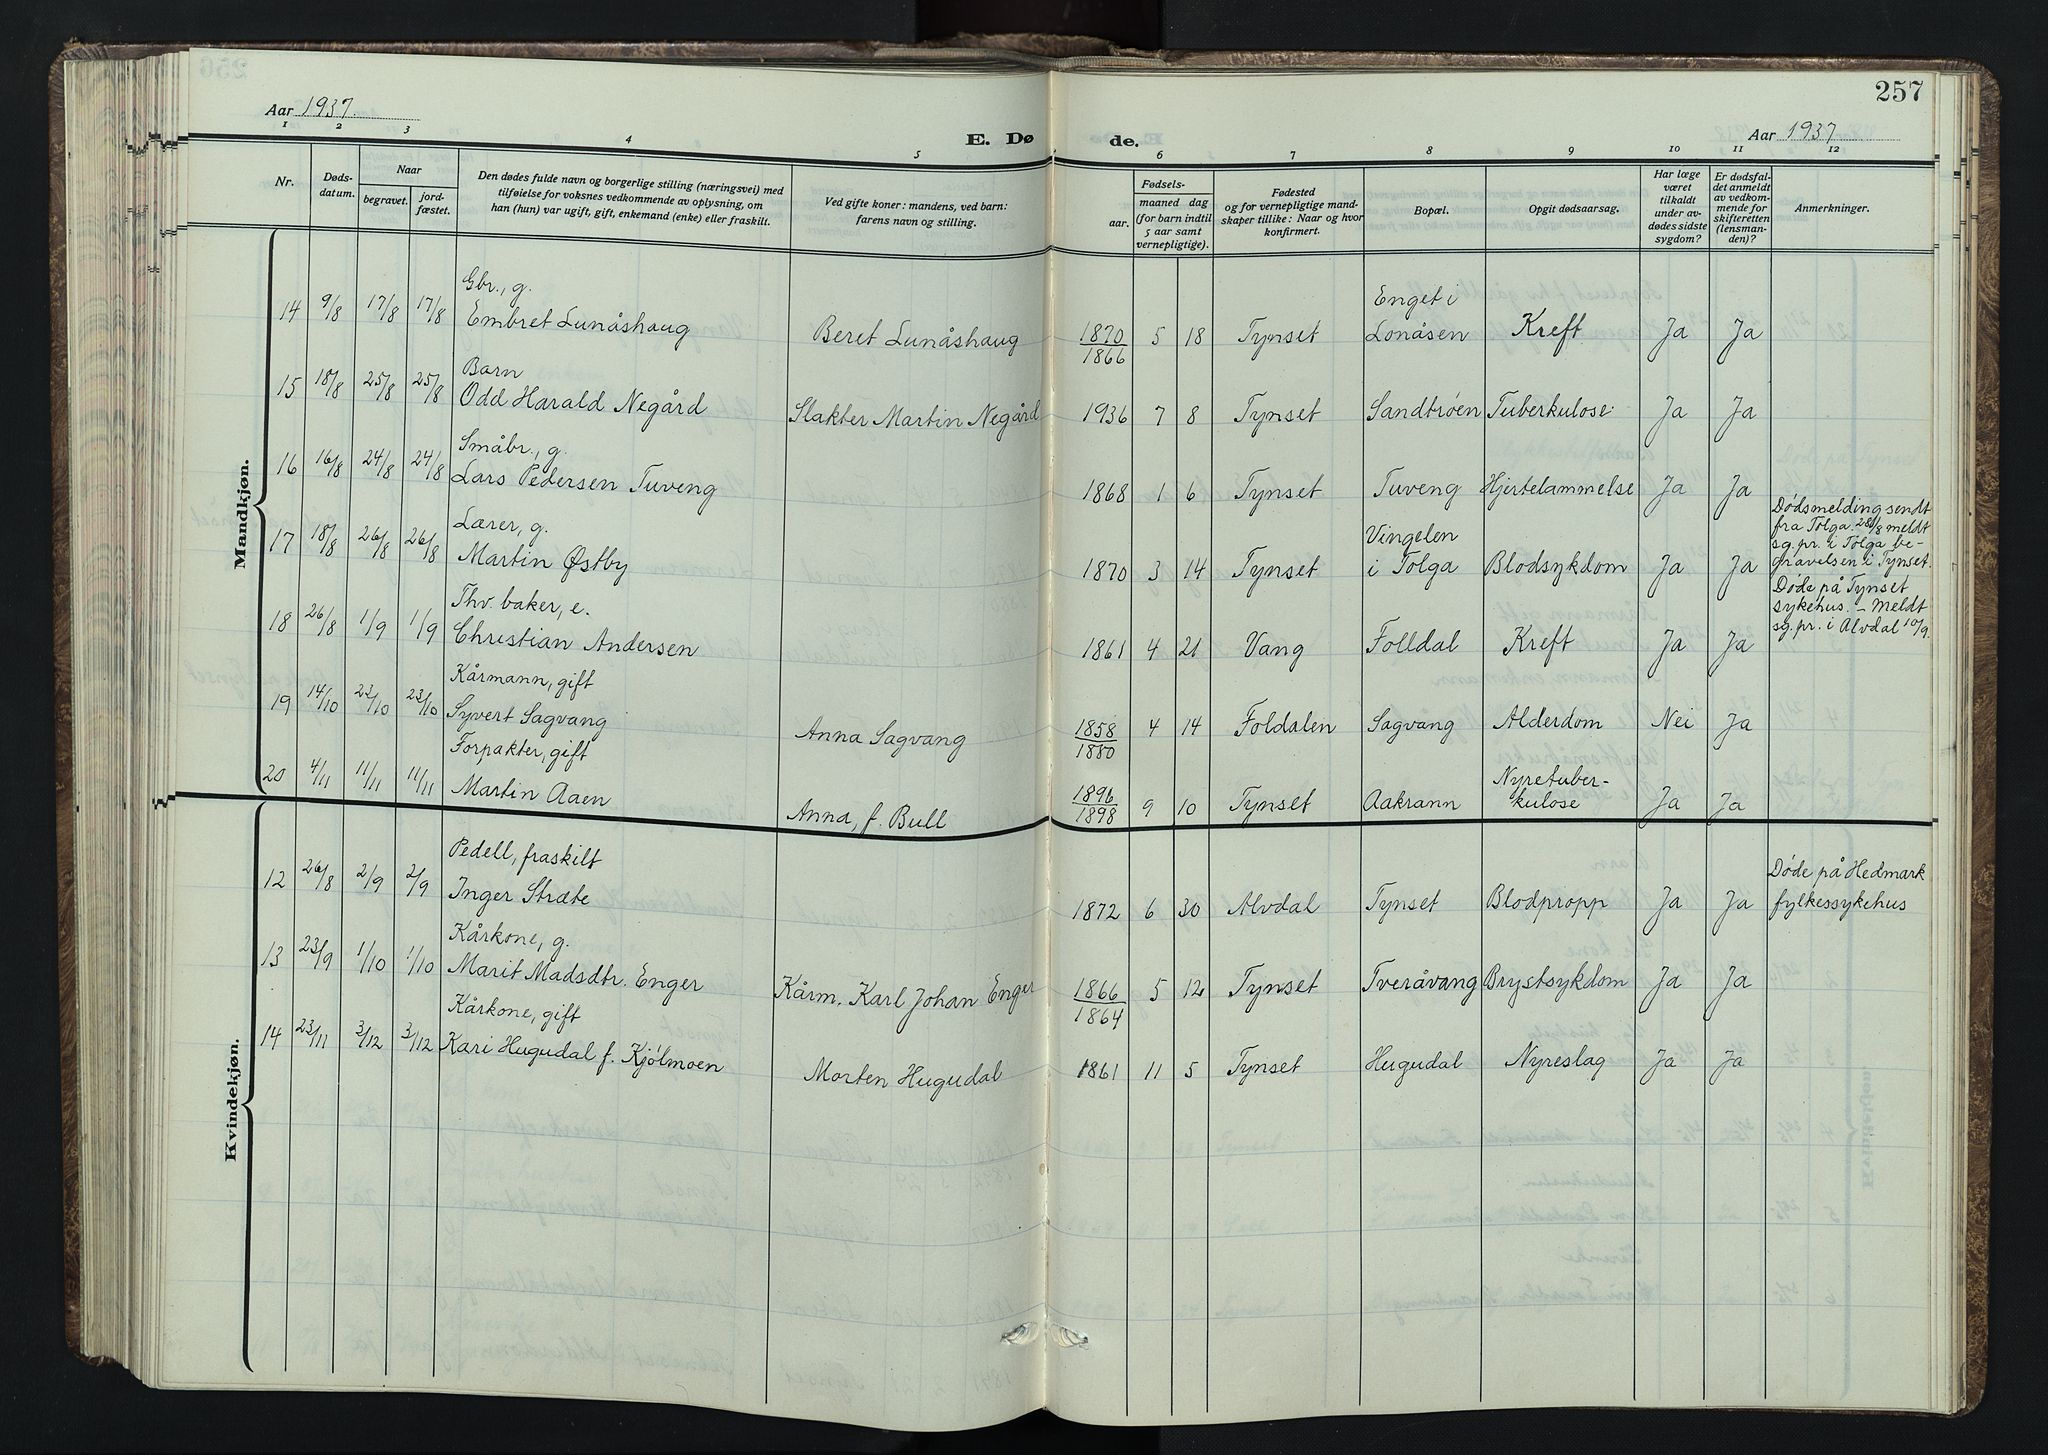 257
Aar 1937.
E. Døde.
Aar 1937
1 2 3 4 5 6 7 8 9 10 11 12
Nr.
Dødsdatum.
Naar
begravet.
jordfæstet.
Den dødes fulde navn og borgerlige stilling (næringsvei) med
tilføielse for voksnes vedkommende av oplysning, om
han (hun) var ugift, gift, enkemand (enke) eller fraskilt.
Ved gifte koner: mandens, ved barn:
farens navn og stilling.
Fødsels-
aar.
maaned dag
(for barn indtil
5 aar samt
vernepligtige).
Fødested
og for vernepligtige mand-
skaper tillike: Naar og hvor
konfirmert.
Bopæl.
Opgit dødsaarsag.
Har læge
været
tilkaldt
under av-
dødes sidste
sygdom?
Er dødsfal-
det anmeldt
av vedkom-
mende for
skifteretten
(lensman-
den)?
Anmerkninger.
Mandkjøn.
Gbr., g.
14 9/8 17/8 17/8 Embret Lunåshaug Beret Lunåshaug 1870/1866 5 18 Tynset Enget i Lonåsen Kreft Ja Ja
Barn
15 18/8 25/8 25/8 Odd Harald Negård Slakter Martin Negård 1936 7 8 Tynset Sandtrøen Tuberkulose Ja Ja
Småbr., g.
16 16/8 24/8 24/8 Lars Pedersen Tuveng 1868 1 6 Tynset Tuveng Hjertelammelse Ja Ja
Lærer, g.
17 18/8 26/8 26/8 Martin Østby 1870 3 14 Tynset Vingelen i Tolga Blodsykdom Ja Ja
Dødsmelding sendt
fra Tolga. 28/8 meldt
sg.pr. i Tolga be-
gravelsen i Tynset.
Thv. baker, e.
18 26/8 1/9 1/9 Christian Andersen 1861 4 21 Vang Folldal Kreft Ja Ja
Døde på Tynset
sykehus. - Meldt
sg.pr. i Alvdal 10/9.
Kårmann, gift
19 14/10 23/10 23/10 Syvert Sagvang Anna Sagvang 1858/1880 4 14 Foldalen Sagvang Alderdom Nei Ja
Forpakter, gift
20 4/11 11/11 11/11 Martin Aaen Anna, f. Bull 1896/1898 9 10 Tynset Aakrann Nyretuber-kulose Ja Ja
Kvindekjøn.
Pedell, fraskilt
12 26/8 2/9 2/9 Inger Stræte 1872 6 30 Alvdal Tynset Blodpropp Ja Ja
Døde på Hedmark
fylkessykehus
Kårkone, g.
13 23/9 1/10 1/10 Marit Madsdtr. Enger Kårm. Karl Johan Enger 1866/1864 5 12 Tynset Tveråvang Brystsykdom Ja Ja
Kårkone, gift
14 23/11 3/12 3/12 Kari Hugudal f. Kjølmoen Morten Hugudal 1861 11 5 Tynset Hugudal Nyreslag Ja Ja